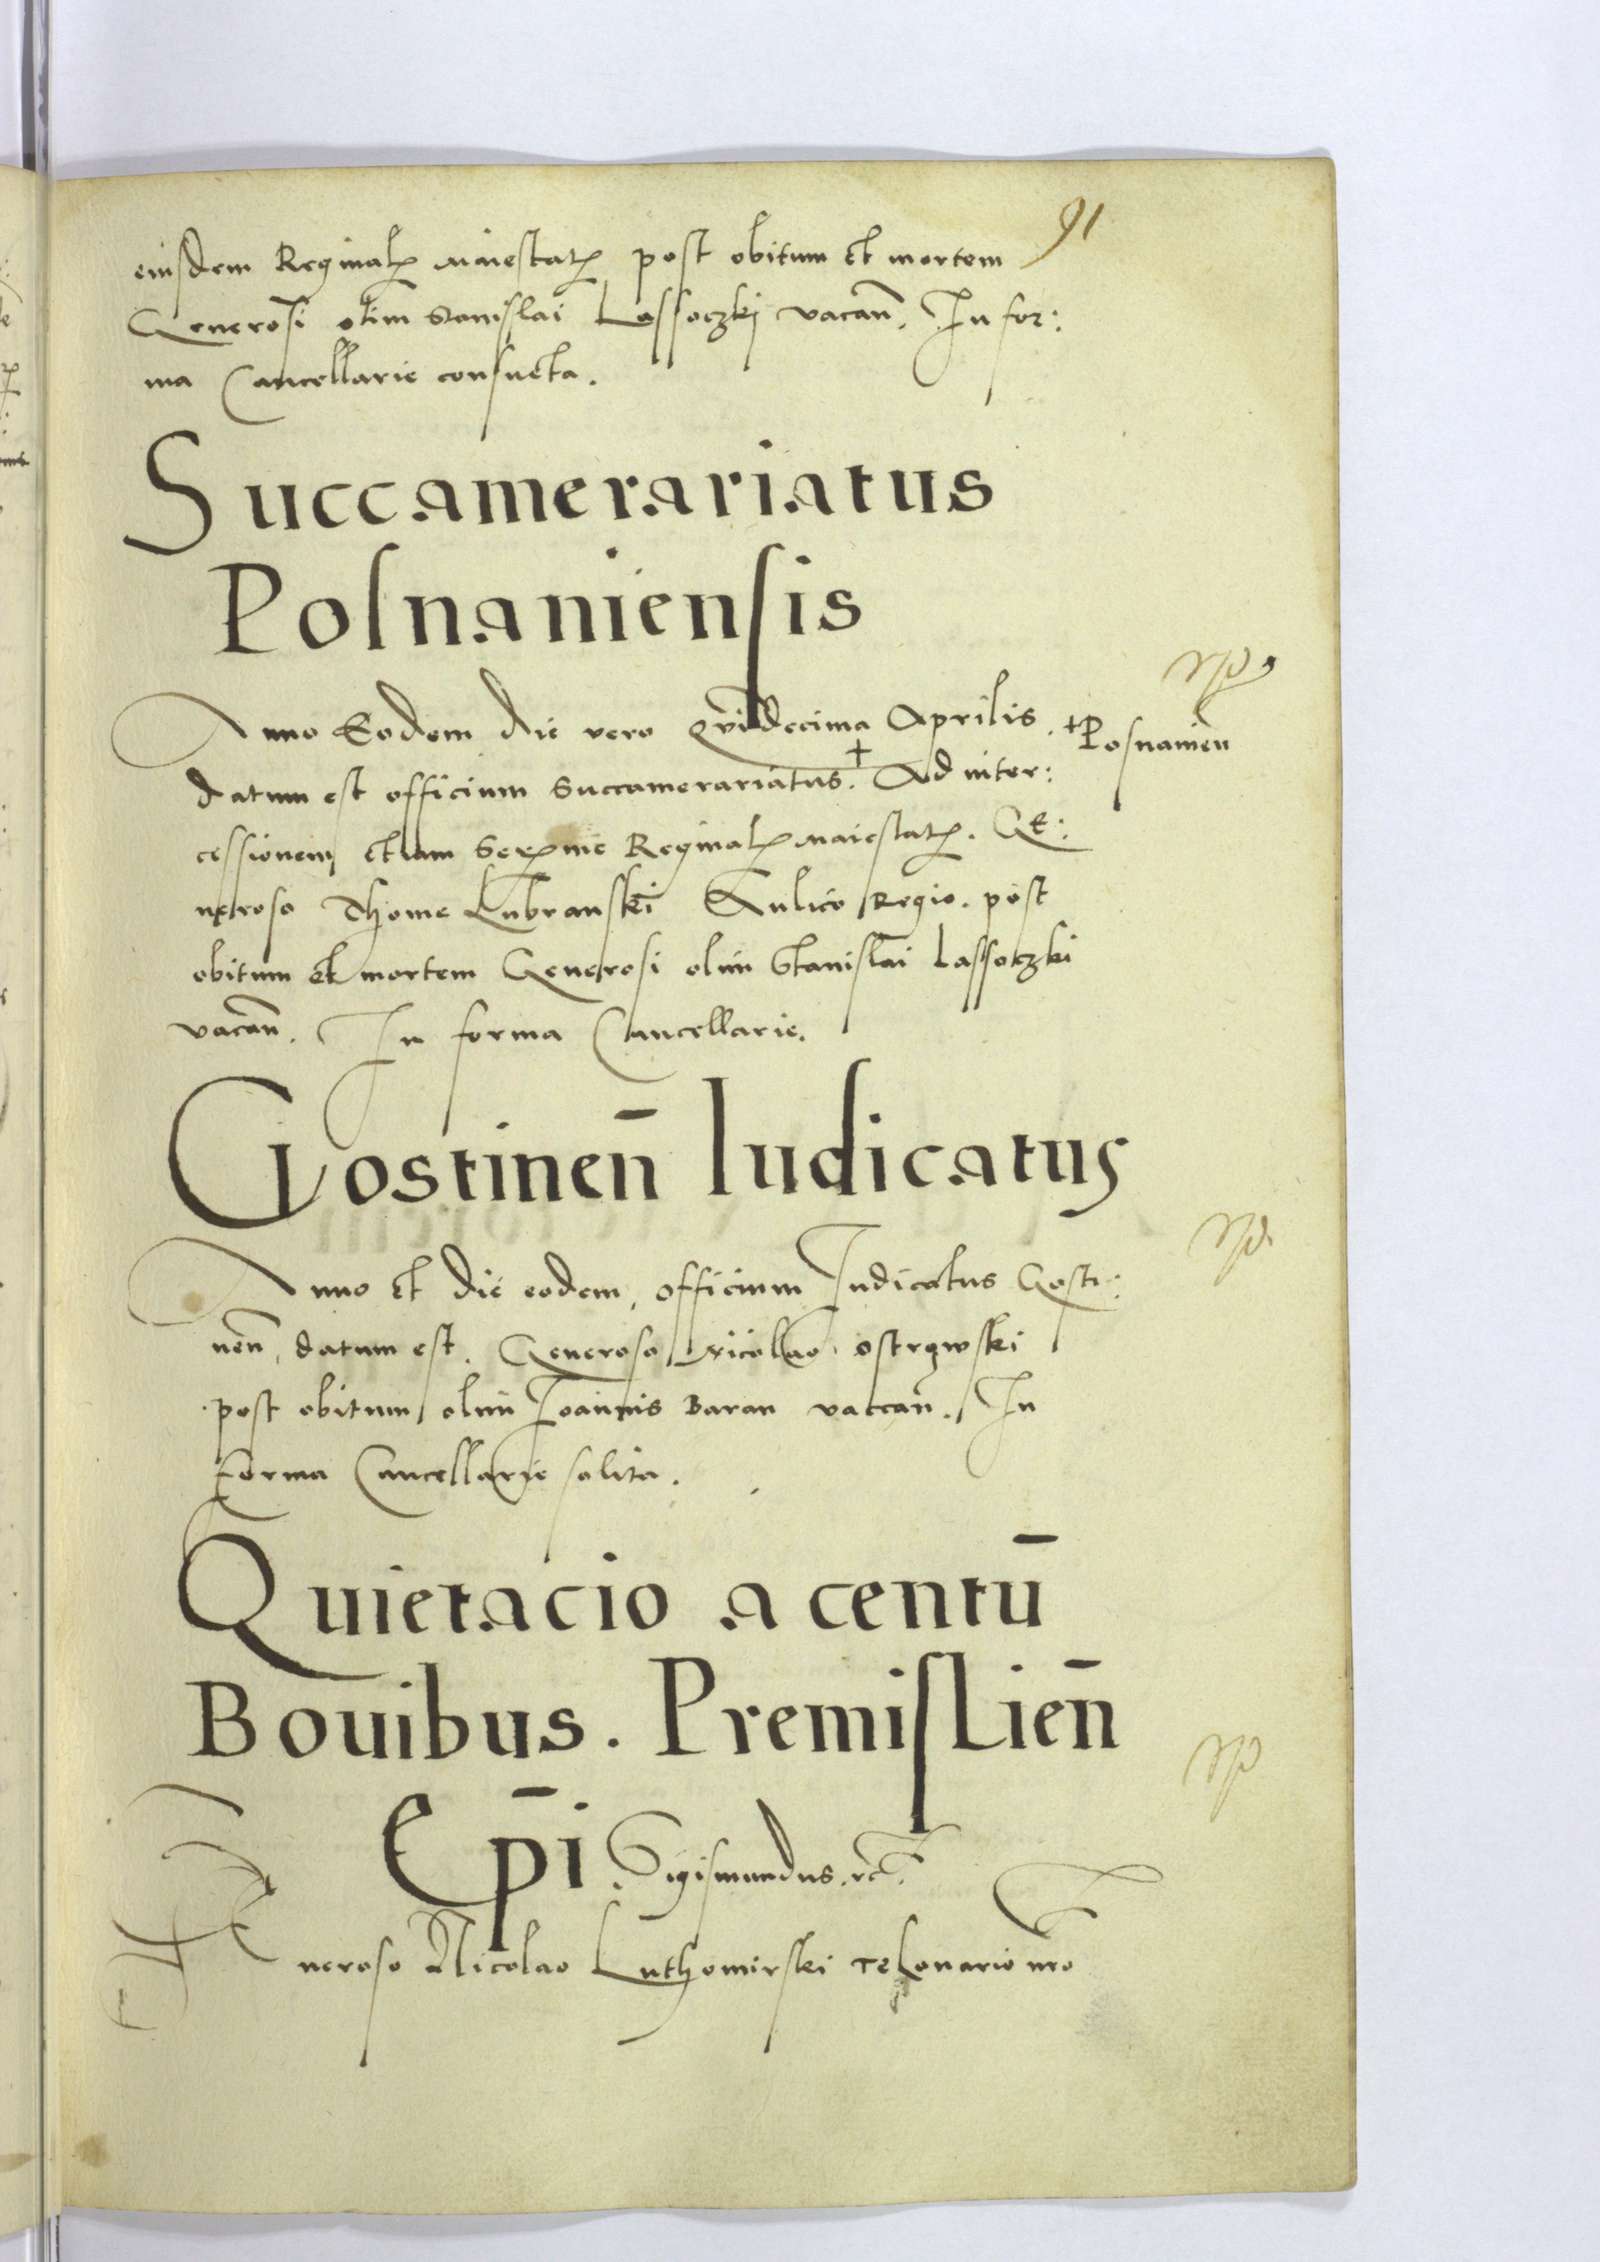 91
eiusdem Reginalꝭ Maiestatꝭ post obitum et mortem
Generosi olim Stanislai Lassoczkj vacan̄. In for:
ma Cancellarie consueta.
Succamerariatus
Posnaniensis
Anno Eodem die vero Qvīdecima Aprilis.
datum est officium Succamerariatus.☩ Ad inter:
☩Posnanien
cessionem etiam Reginalꝭ Maiestatꝭ. Ge:
neroso Thome Lubranskj Aulico Regio. post
obitum et mortem Generosi olim Stanislai Lassoczki
vacan̄. In forma Cancellarie.
Gostinen̄ Iudicatus
Anno et die eodem, officium Iudicatus Gosti:
nen̄, datum est. Generoso Nicolao Ostrowski
post obitum olim Ioannis Baran vaccan̄. In
forma Cancellarie solita.
Quietacio a centū
Bouibus. Premislien̄
Ep̄i. Sigismundus. rc̄.
Generoso Nicolao Luthomirski Telonario nr̄o